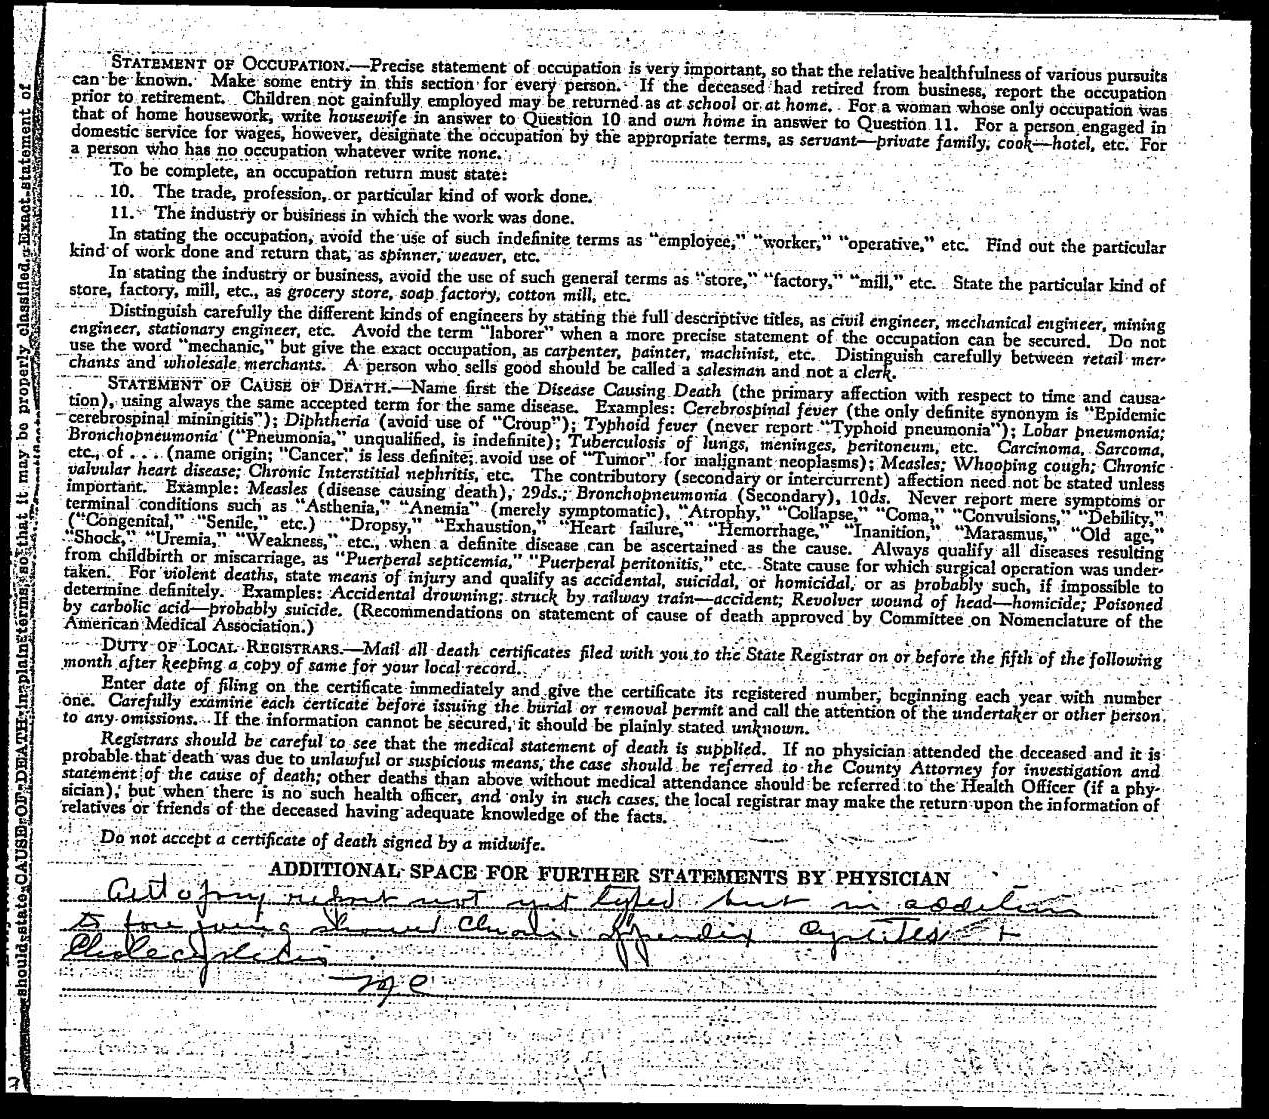 STATEMENT OF OCCUPATION.—Precise statement of occupation is very important, so that the relative healthfulness of various pursuits
can be known. Make some entry in this section for every person. If the deceased had retired from business, report the occupation
prior to retirement. Children not gainfully employed may be returned as at school or at home. For a woman whose only occupation was
that of home housework, write housewife in answer to Question 10 and own home in answer to Question 11. For a person engaged in
domestic service for wages, however, designate the occupation by the appropriate terms, as servant—private family, cook—hotel, etc. For
a person who has no occupation whatever write none.
To be complete, an occupation return must state:
10. The trade, profession, or particular kind of work done.
11. The industry or business in which the work was done.
In stating the occupation, avoid the use of such indefinite terms as "employee," "worker," "operative," etc. Find out the particular
kind of work done and return that, as spinner, weaver, etc.
In stating the industry or business, avoid the use of such general terms as "store," "factory," "mill," etc. State the particular kind of
store, factory, mill, etc., as grocery store, soap factory, cotton mill, etc.
Distinguish carefully the different kinds of engineers by stating the full descriptive titles, as civil engineer, mechanical engineer, mining
engineer, stationary engineer, etc. Avoid the term "laborer" when a more precise statement of the occupation can be secured. Do not
use the word "mechanic," but give the exact occupation, as carpenter, painter, machinist, etc. Distinguish carefully between retail mer-
chants and wholesale merchants. A person who sells good should be called a salesman and not a clerk.
STATEMENT OF CAUSE OF DEATH.—Name first the Disease Causing Death (the primary affection with respect to time and causa-
tion), using always the same accepted term for the same disease. Examples: Cerebrospinal fever (the only definite synonym is "Epidemic
cerebrospinal miningitis"); Diphtheria (avoid use of "Croup"); Typhoid fever (never report "Typhoid pneumonia"); Lobar pneumonia;
Bronchopneumonia ("Pneumonia," unqualified, is indefinite); Tuberculosis of lungs, meninges, peritoneum, etc. Carcinoma, Sarcoma,
etc., of . . . (name origin; "Cancer" is less definite; avoid use of "Tumor" for malignant neoplasms); Measles; Whooping cough; Chronic
valvular heart disease; Chronic Interstitial nephritis, etc. The contributory (secondary or intercurrent) affection need not be stated unless
important. Example: Measles (disease causing death), 29ds.; Bronchopneumonia (Secondary), 10ds. Never report mere symptoms or
terminal conditions such as "Asthenia," "Anemia" (merely symptomatic), "Atrophy," "Collapse," "Coma," "Convulsions," "Debility,"
("Congenital," "Senile," etc.) "Dropsy," "Exhaustion," "Heart failure," "Hemorrhage," "Inanition," "Marasmus," "Old age,"
"Shock," "Uremia," "Weakness," etc., when a definite disease can be ascertained as the cause. Always qualify all diseases resulting
from childbirth or miscarriage, as "Puerperal septicemia," "Puerperal peritonitis," etc. State cause for which surgical operation was under-
taken. For violent deaths, state means of injury and qualify as accidental, suicidal, or homicidal, or as probably such, if impossible to
determine definitely. Examples: Accidental drowning; struck by railway train—accident; Revolver wound of head—homicide; Poisoned
by carbolic acid—probably suicide. (Recommendations on statement of cause of death approved by Committee on Nomenclature of the
American Medical Association.)
DUTY OF LOCAL REGISTRARS.—Mail all death certificates filed with you to the State Registrar on or before the fifth of the following
month after keeping a copy of same for your local record.
Enter date of filing on the certificate immediately and give the certificate its registered number, beginning each year with number
one. Carefully examine each certicate before issuing the burial or removal permit and call the attention of the undertaker or other person
to any omissions. If the information cannot be secured, it should be plainly stated unknown.
Registrars should be careful to see that the medical statement of death is supplied. If no physician attended the deceased and it is
probable that death was due to unlawful or suspicious means, the case should be referred to the County Attorney for investigation and
statement of the cause of death; other deaths than above without medical attendance should be referred to the Health Officer (if a phy-
sician), but when there is no such health officer, and only in such cases, the local registrar may make the return upon the information of
relatives or friends of the deceased having adequate knowledge of the facts.
Do not accept a certificate of death signed by a midwife.
ADDITIONAL SPACE FOR FURTHER STATEMENTS BY PHYSICIAN
Autopsy report not yet typed but in addition
to foregoing showed Chronic Appendix Cystitis +
Cholecystitis
should state CAUSE OF DEATH in plain terms, so that it may be properly classified. Exact statement of